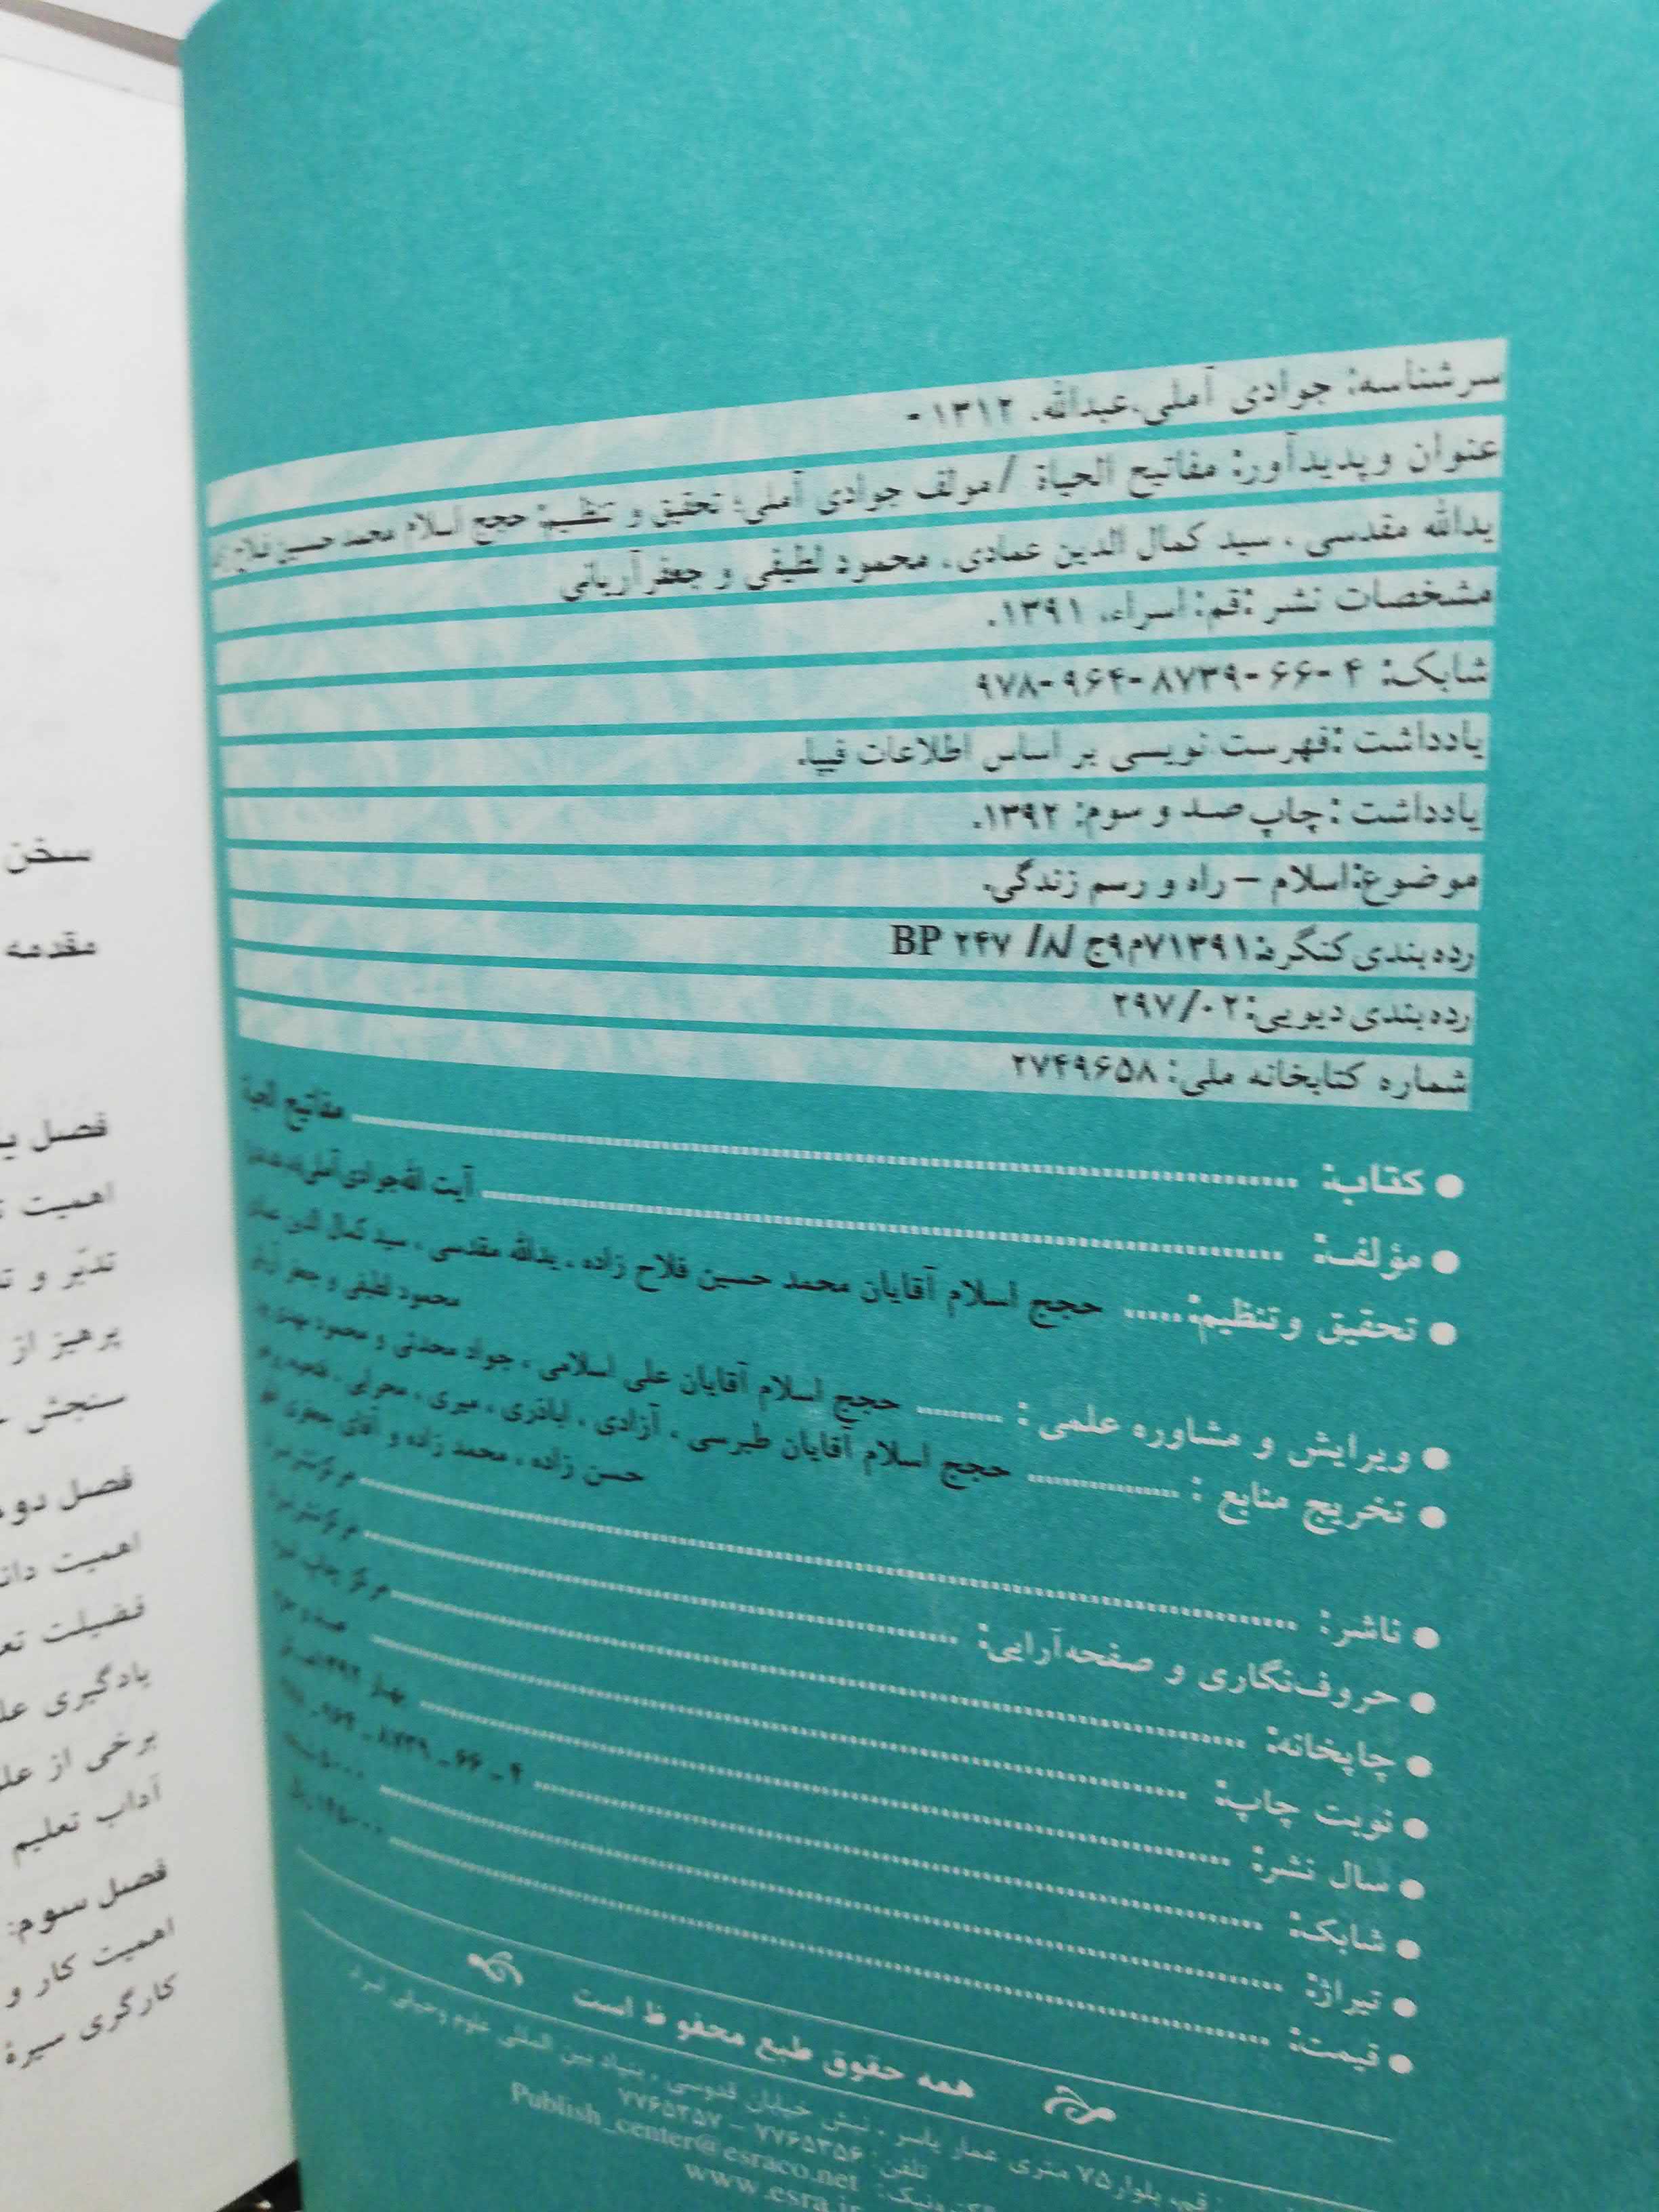 سرشناسه: جوادی آملی، عبدالله. ۱۳۱۲ -
عنوان و پدیدآور: مفاتیح الحیاة / مولف جوادی آملی؛ تحقیق و تنظیم: حجج اسلام محمد حسین فلاح زاده
یدالله مقدسی ، سید کمال الدین عمادی، محمود لطیفی و جعفر آریانی
مشخصات نشر :قم: اسراء، ۱۳۹۱.
شابک: ۴ -۶۶-۸۷۳۹-۹۶۴-۹۷۸
یادداشت :فهرست نویسی بر اساس اطلاعات فیپا.
یادداشت :چاپ صد و سوم: ۱۳۹۲.
موضوع:اسلام – راه و رسم زندگی.
رده‌بندی کنگره:۷۱۳۹۱م۹ج /۸/ ۲۴۷ BP
رده‌بندی دیویی:۲۹۷/۰۲
شماره کتابخانه ملی: ۲۷۴۹۶۵۸
● کتاب: مفاتیح الحیاة
● مؤلف: آیت الله جوادی آملی
● تحقیق و تنظیم: حجج اسلام آقایان محمد حسین فلاح زاده ، یدالله مقدسی ، سید کمال الدین
محمود لطیفی و جعفر آریانی
● ویرایش و مشاوره علمی : حجج اسلام آقایان علی اسلامی ، جواد محدثی و محمود مهدی
● تخریج منابع : حجج اسلام آقایان طبرسی ، آزادی ، اباذری ، میری ،
حسن زاده ، محمد زاده و آقای
● ناشر: مرکز نشر
● حروف‌نگاری و صفحه‌آرایی: مرکز نشر
● چاپخانه: مرکز چاپ
● نوبت چاپ: صد و سوم
● سال نشر: بهار ۱۳۹۲
● شابک: ۴ ـ ۶۶ ـ ۸۷۳۹ ـ ۹۶۴ ـ ۹۷۸
● تیراژ: ۵۰۰۰ نسخه
● قیمت:
همه حقوق طبع محفوظ است
قم، بلوار ۷۵ متری عمار یاسر ، نبش خیابان قدوسی ، بنیاد بین المللی علوم وحیانی اسراء
تلفن: ۷۷۶۵۳۵۶ – ۷۷۶۵۳۵۷
Publish_center@esraco.net
www.esra.ir
سخن
مقدمه
فصل
اهمیت
تدبّر و
پرهیز از
سنجش
فصل دوم
اهمیت
فضیلت
یادگیری
برخی از
آداب تعلیم
فصل سوم:
اهمیت کار و
کارگری سیرهٔ